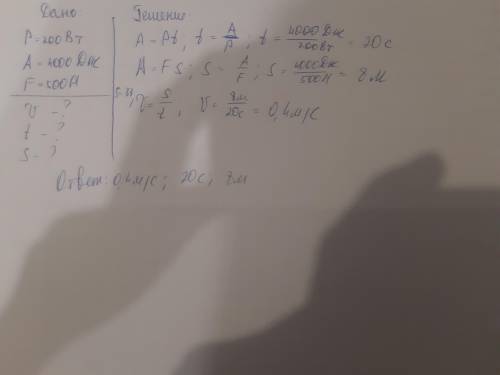 Дано:
P=200Вт
A=4000Дж
F=500Н
v - ?
t - ?
s - ?
Решение:
A=Pt; t=A/P; t=4000Дж/200Вт=20с
A=FS; S=A/F; S=4000Дж/500Н=8м
V=S/t, V=8м/20с=0,4м/с
Ответ: 0,4м/с; 20с, 8м